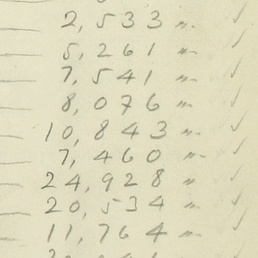 2,533 "
5,261 "
7,541 "
8,076 "
10,843 "
7,460 "
24,928 "
20,534 "
11,764 "